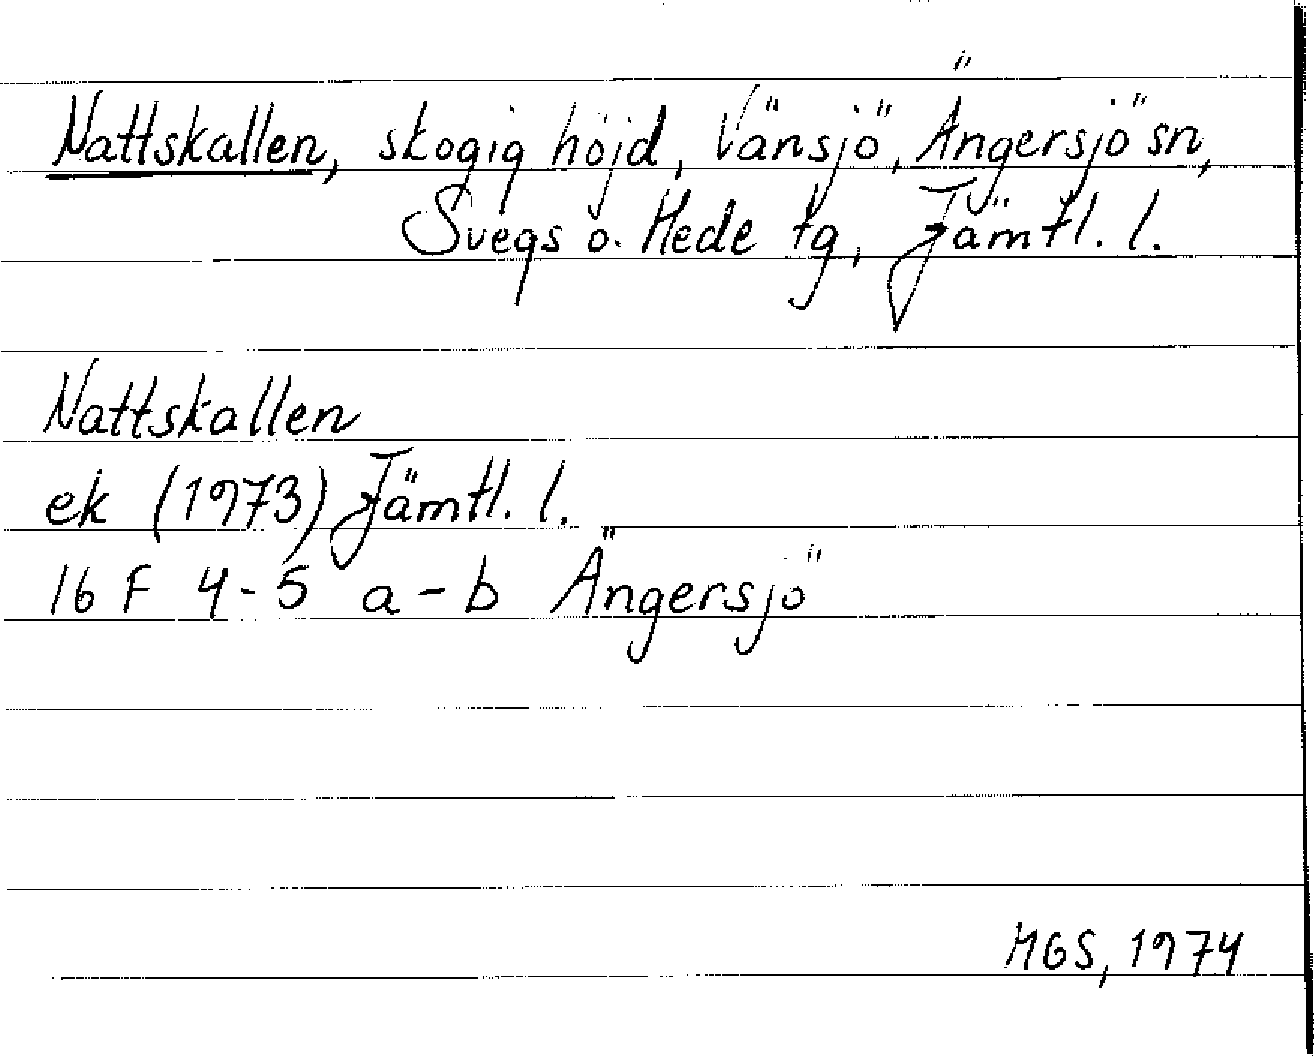 Nattskallen, skogig höjd, Vänsjö, Ängersjö sn,
Svegs o. Hede tg, Jämtl. l.
Nattskallen
ek (1973) Jämtl. l.
16 F 4-5 a-b Ängersjö
MGS, 1974